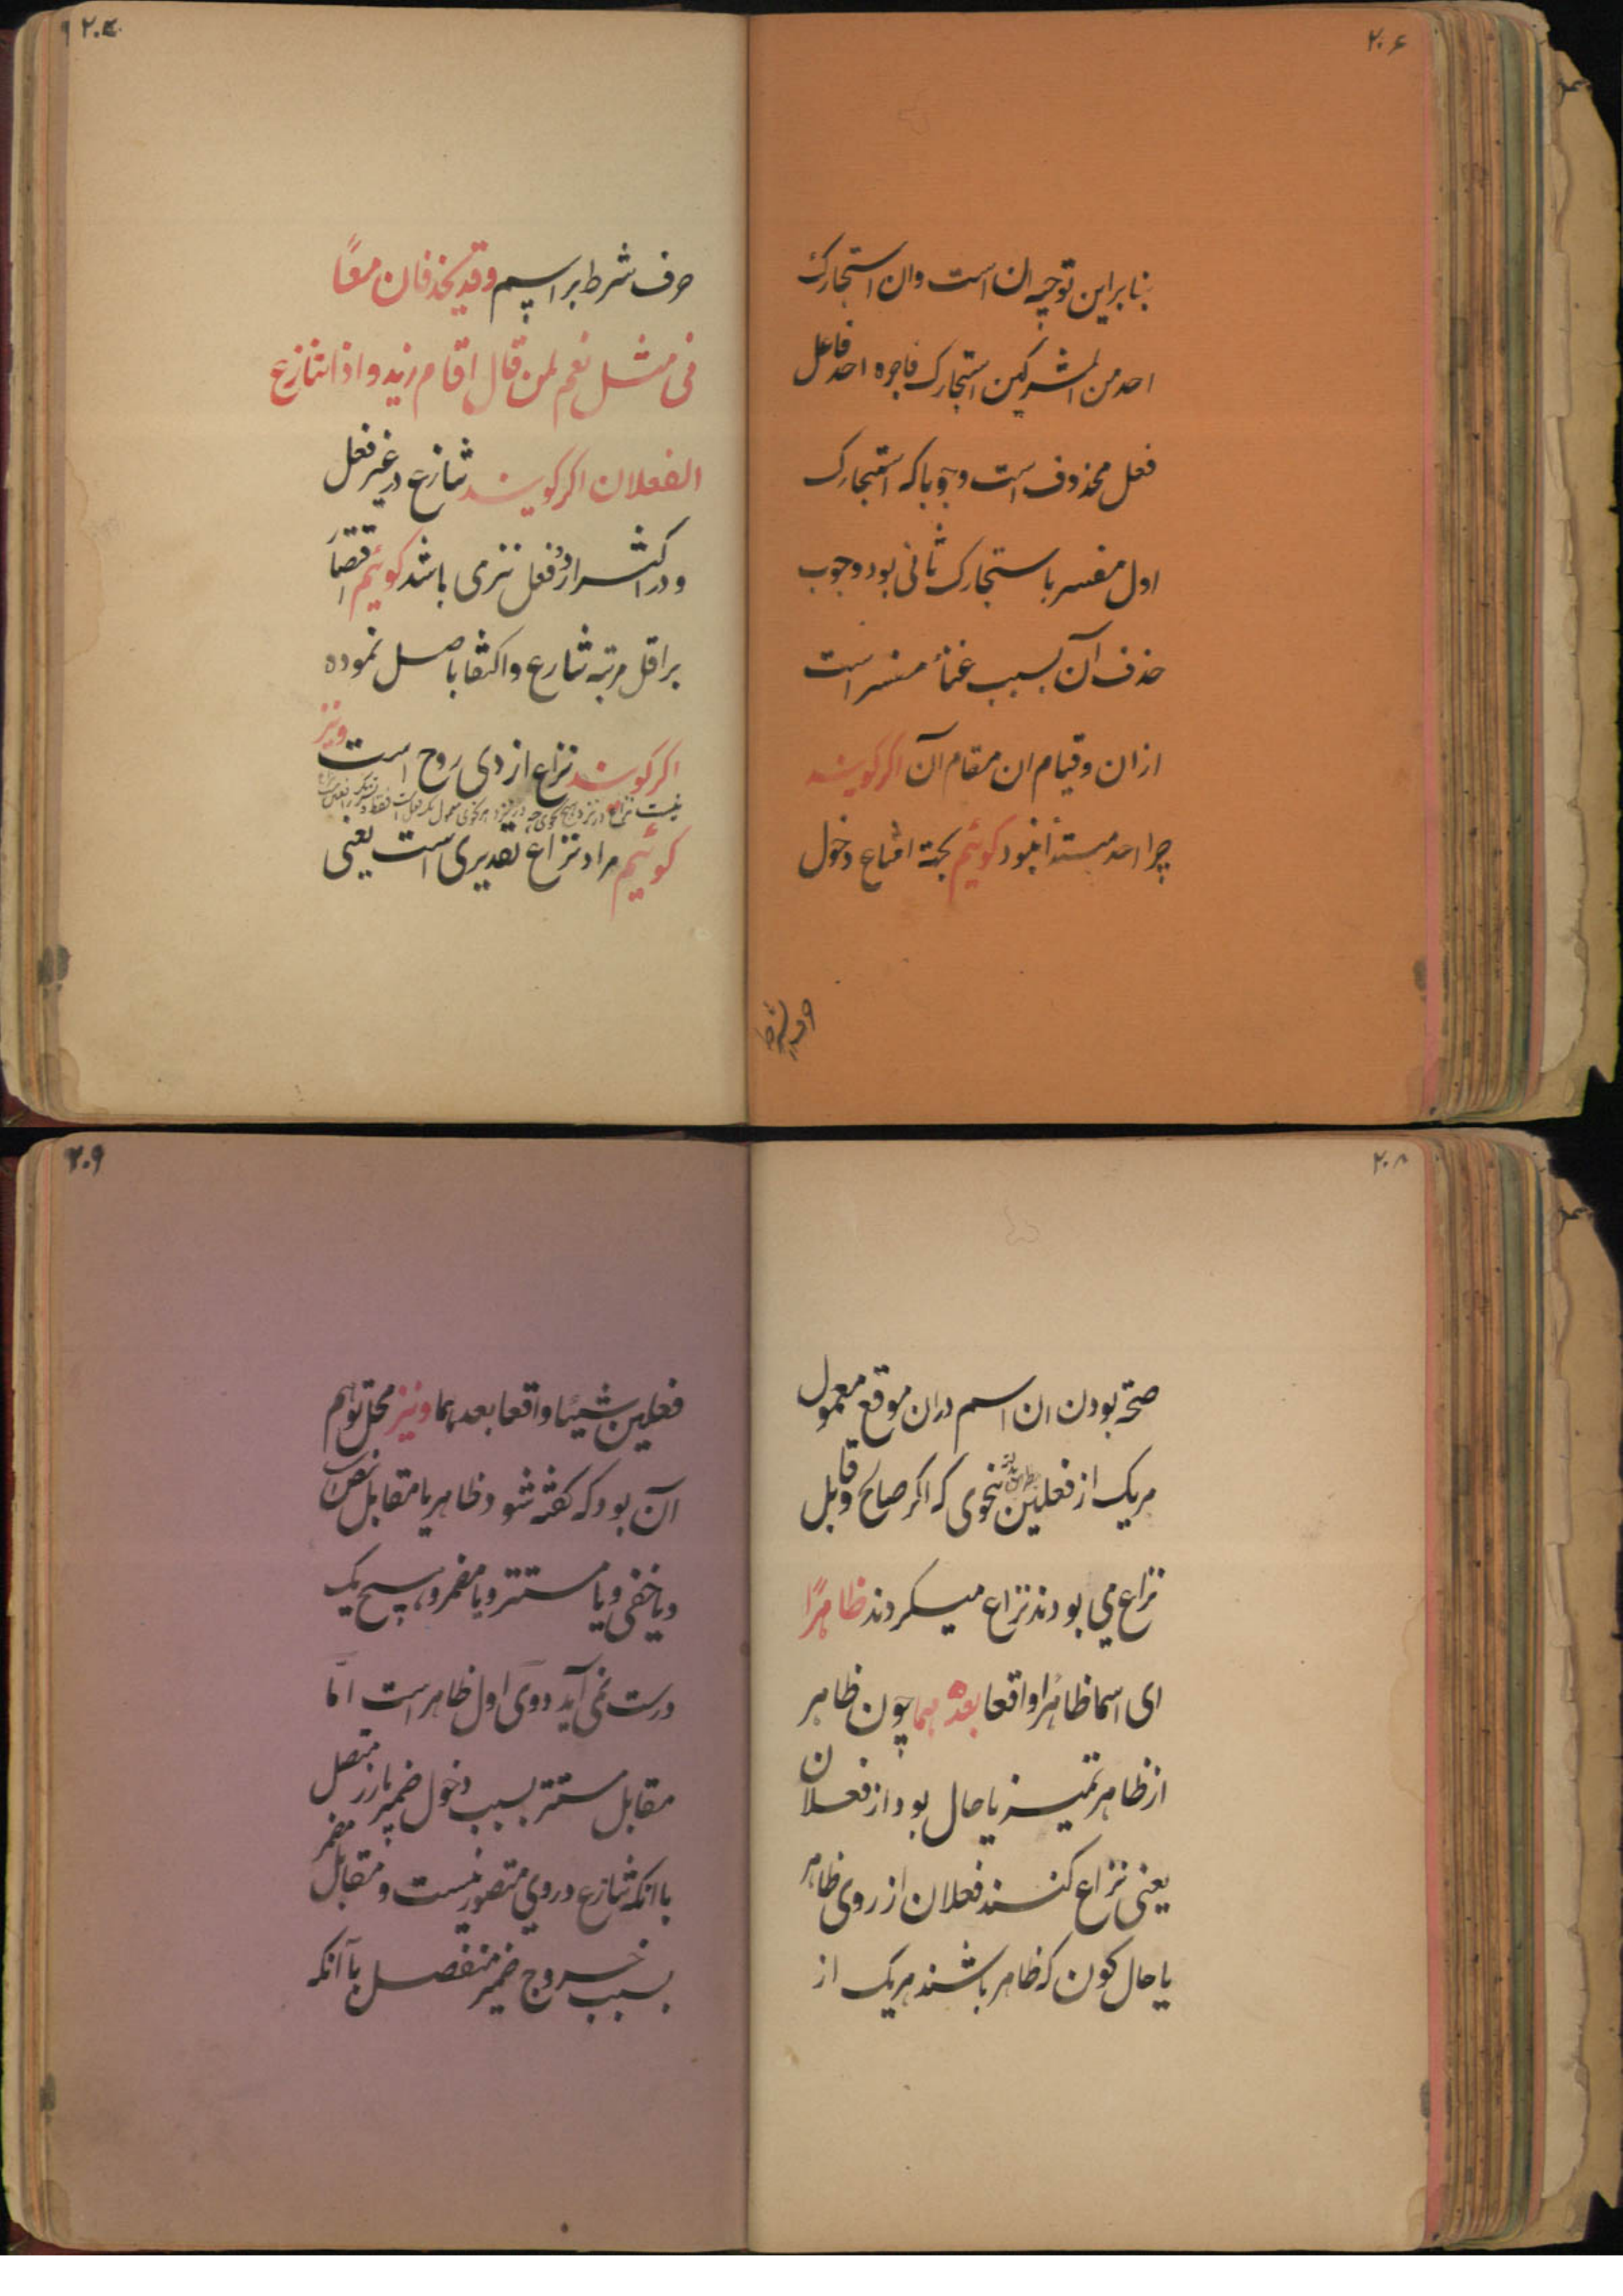 ۲۰۶
بنابراین توجیه ان است وان استجارک
احد من المشرکین استجارک فاجره احد فاعل
فعل محذوف است وجوبا که استجارک
اول مفسر با ستجارک ثانی بود وجوب
حذف آن بسبب غناء مفسر است
ازان وقیام ان مقام آن اکر کویند
چرا احد مبتدا نبود کوئیم بجهة امتناع دخول
حرف شرط
حرف شرط بر اسم وقد یحذفان معًا
فی مثل نعم لمن قال اقام زید واذا تنازع
الفعلان اکر کویند تنازع در غیر فعل
ودر اکثر از دو فعل نیز می باشد کوئیم اقتصار
براقل مرتبه تنازع واکتفا باصل نموده
ونیز
اکر کویند نزاع از ذی روح است
کوئیم مراد نزاع تقدیری است یعنی
۲۰۸
صحة بودن ان اسم دران موقع معمول
هریک از فعلین بنحوی که اکر صالح وقابل
نزاع می بودند نزاع میکردند ظاهرًا
ای اسما ظاهرا واقعا بعدهما چون ظاهر
از ظاهر تمیز یا حال بود از فعلان
یعنی نزاع کنند فعلان از روی ظاهر
یا حال کون که ظاهر باشند هریک از
۲۰۹
فعلین شیئا واقعا بعدهما ونیز محل توهم
آن بود که کفته شود ظاهر یا مقابل نص است
ویا خفی ویا مستتر ویا مضمر وهیچ یک
درست نمی آید دوی اول ظاهر است امّا
مقابل مستتر بسبب دخول ضمیر بارز متصل
باانکه تنازع در وی متصور نیست ومقابل مضمر
بسبب خروج ضمیر منفصل باآنکه